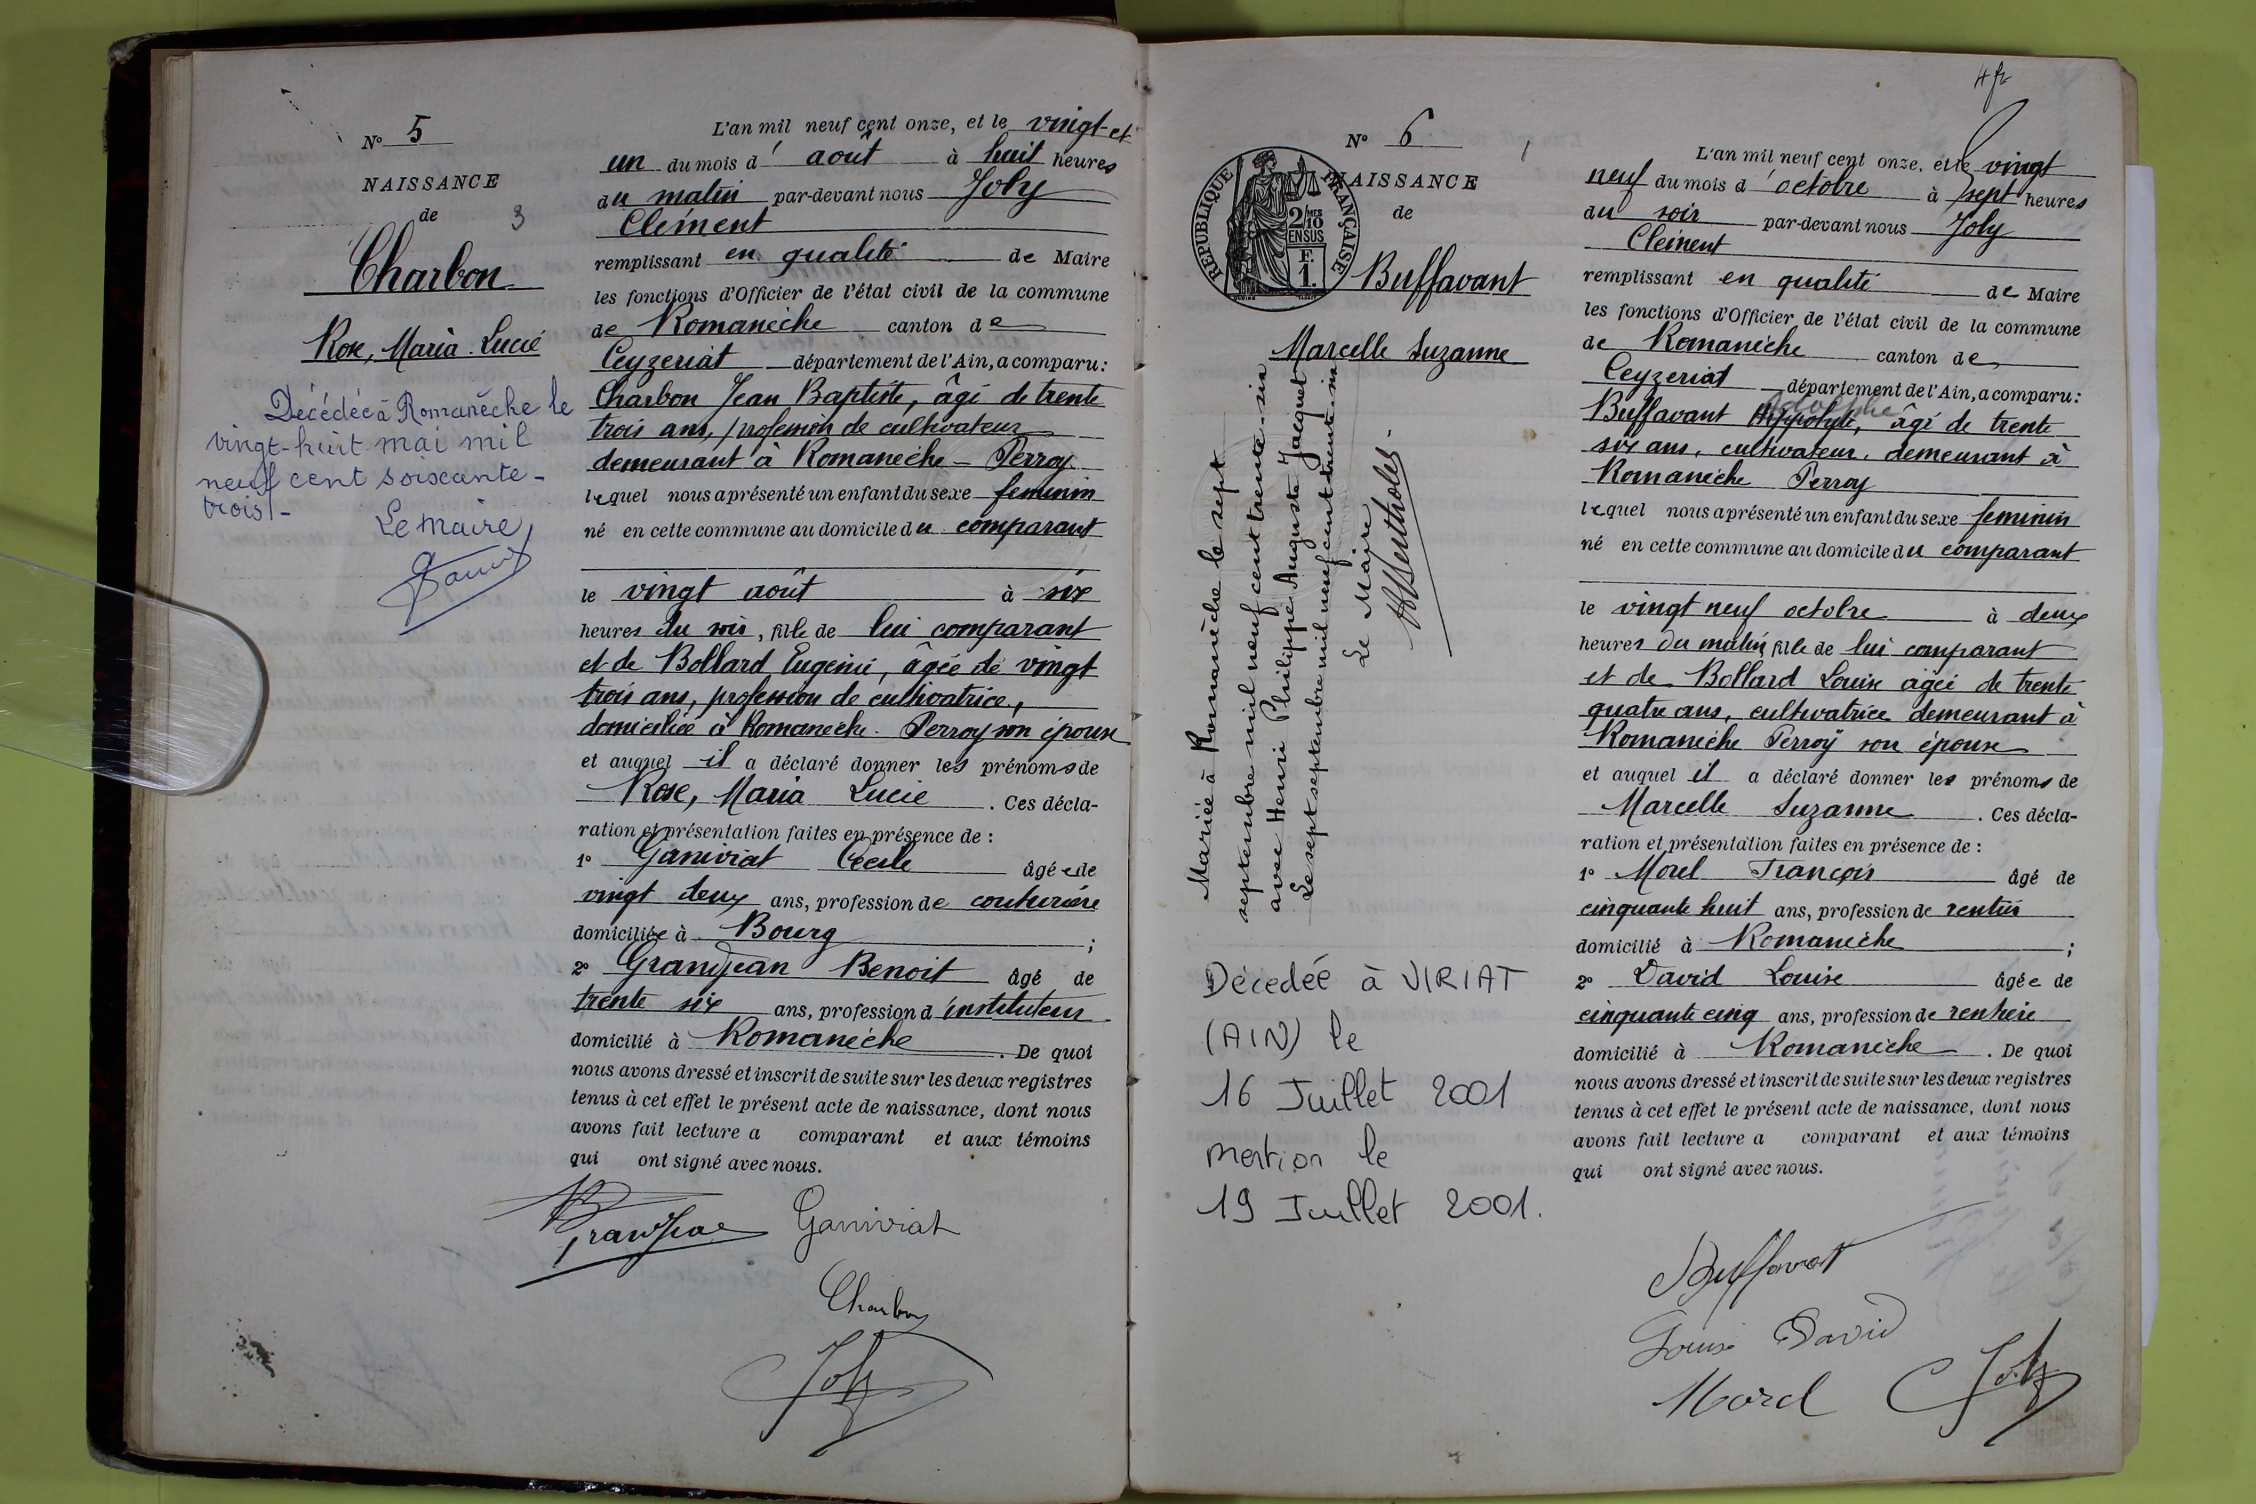 N° 5
NAISSANCE
de
3
Charbon
Rose, Maria Lucie
Décédée à Romanèche le
vingt-huit mai mil
neuf cent soixante-
trois-
Le Maire,
L'an mil neuf cent onze, et le vingt-et
un du mois d' août à huit heures
du matin par-devant nous Joly
Clément
remplissant en qualité de Maire
les fonctions d'Officier de l'état civil de la commune
de Romanèche canton de
Ceyzeriat département de l'Ain, a comparu:
Charbon Jean Baptiste, âgé de trente
trois ans, profession de cultivateur
demeurant à Romanèche - Perroy
lequel nous a présenté un enfant du sexe feminin
né en cette commune au domicile du comparant
le vingt août à six
heures du soir, fille de lui comparant
et de Bollard Eugénie, âgée de vingt
trois ans, profession de cultivatrice,
domiciliée à Romanèche. Perroy son épouse
et auquel il a déclaré donner les prénoms de
Rose, Maria Lucie . Ces décla-
ration et présentation faites en présence de :
1° Ganivriat Cécile âgée de
vingt deux ans, profession de couturière
domiciliée à Bourg ;
2° Grandjean Benoit âgé de
trente six ans, profession d'instituteur
domicilié à Romanèche . De quoi
nous avons dressé et inscrit de suite sur les deux registres
tenus à cet effet le présent acte de naissance, dont nous
avons fait lecture a comparant et aux témoins
qui ont signé avec nous.
Grandjean Ganivriat
Charbon
Joly
4 fr
N° 6
NAISSANCE
de
REPUBLIQUE FRANÇAISE
2/10 MES
EN SUS
F.
1.
Buffavant
Marcelle Suzanne
Mariée à Romanèche le sept
septembre mil neuf cent trente-six
avec Henri Philippe Auguste Jacquet
Le sept septembre mil neuf cent trente-six
Le Maire
Décedéé à VIRIAT
(AIN) le
16 Juillet 2001
mention le
19 Juillet 2001.
L'an mil neuf cent onze, et le vingt
neuf du mois d'octobre à sept heures
du soir par-devant nous Joly
Clément
remplissant en qualité de Maire
les fonctions d'Officier de l'état civil de la commune
de Romanèche canton de
Ceyzeriat département de l'Ain, a comparu:
Adolphe
Buffavant Hippolyte, âgé de trente
six ans, cultivateur, demeurant à
Romanèche Perroy
lequel nous a présenté un enfant du sexe feminin
né en cette commune au domicile du comparant
le vingt neuf octobre à deux
heures du matin fille de lui comparant
et de Bollard Louise âgée de trente
quatre ans, cultivatrice demeurant à
Romanèche Perroy son épouse
et auquel il a déclaré donner les prénoms de
Marcelle Suzanne . Ces décla-
ration et présentation faites en présence de :
1° Morel François âgé de
cinquante huit ans, profession de rentier
domicilié à Romanèche ;
2° David Louise âgée de
cinquante cinq ans, profession de rentière
domicilié à Romanèche . De quoi
nous avons dressé et inscrit de suite sur les deux registres
tenus à cet effet le présent acte de naissance, dont nous
avons fait lecture a comparant et aux témoins
qui ont signé avec nous.
Buffavant
Louise David
Morel Joly